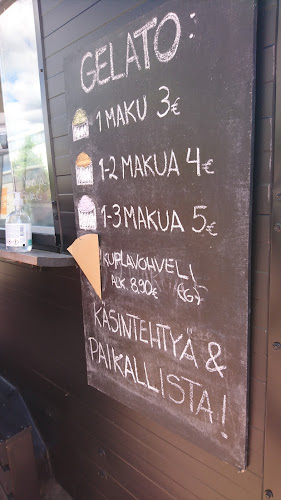 GELATO:
1 MAKU 3€
1-2 MAKUA 4€
1-3 MAKUA 5€
KUPLAVOHVELI
ALK. 8.90€ (G)
KÄSINTEHTYÄ &
PAIKALLISTA!